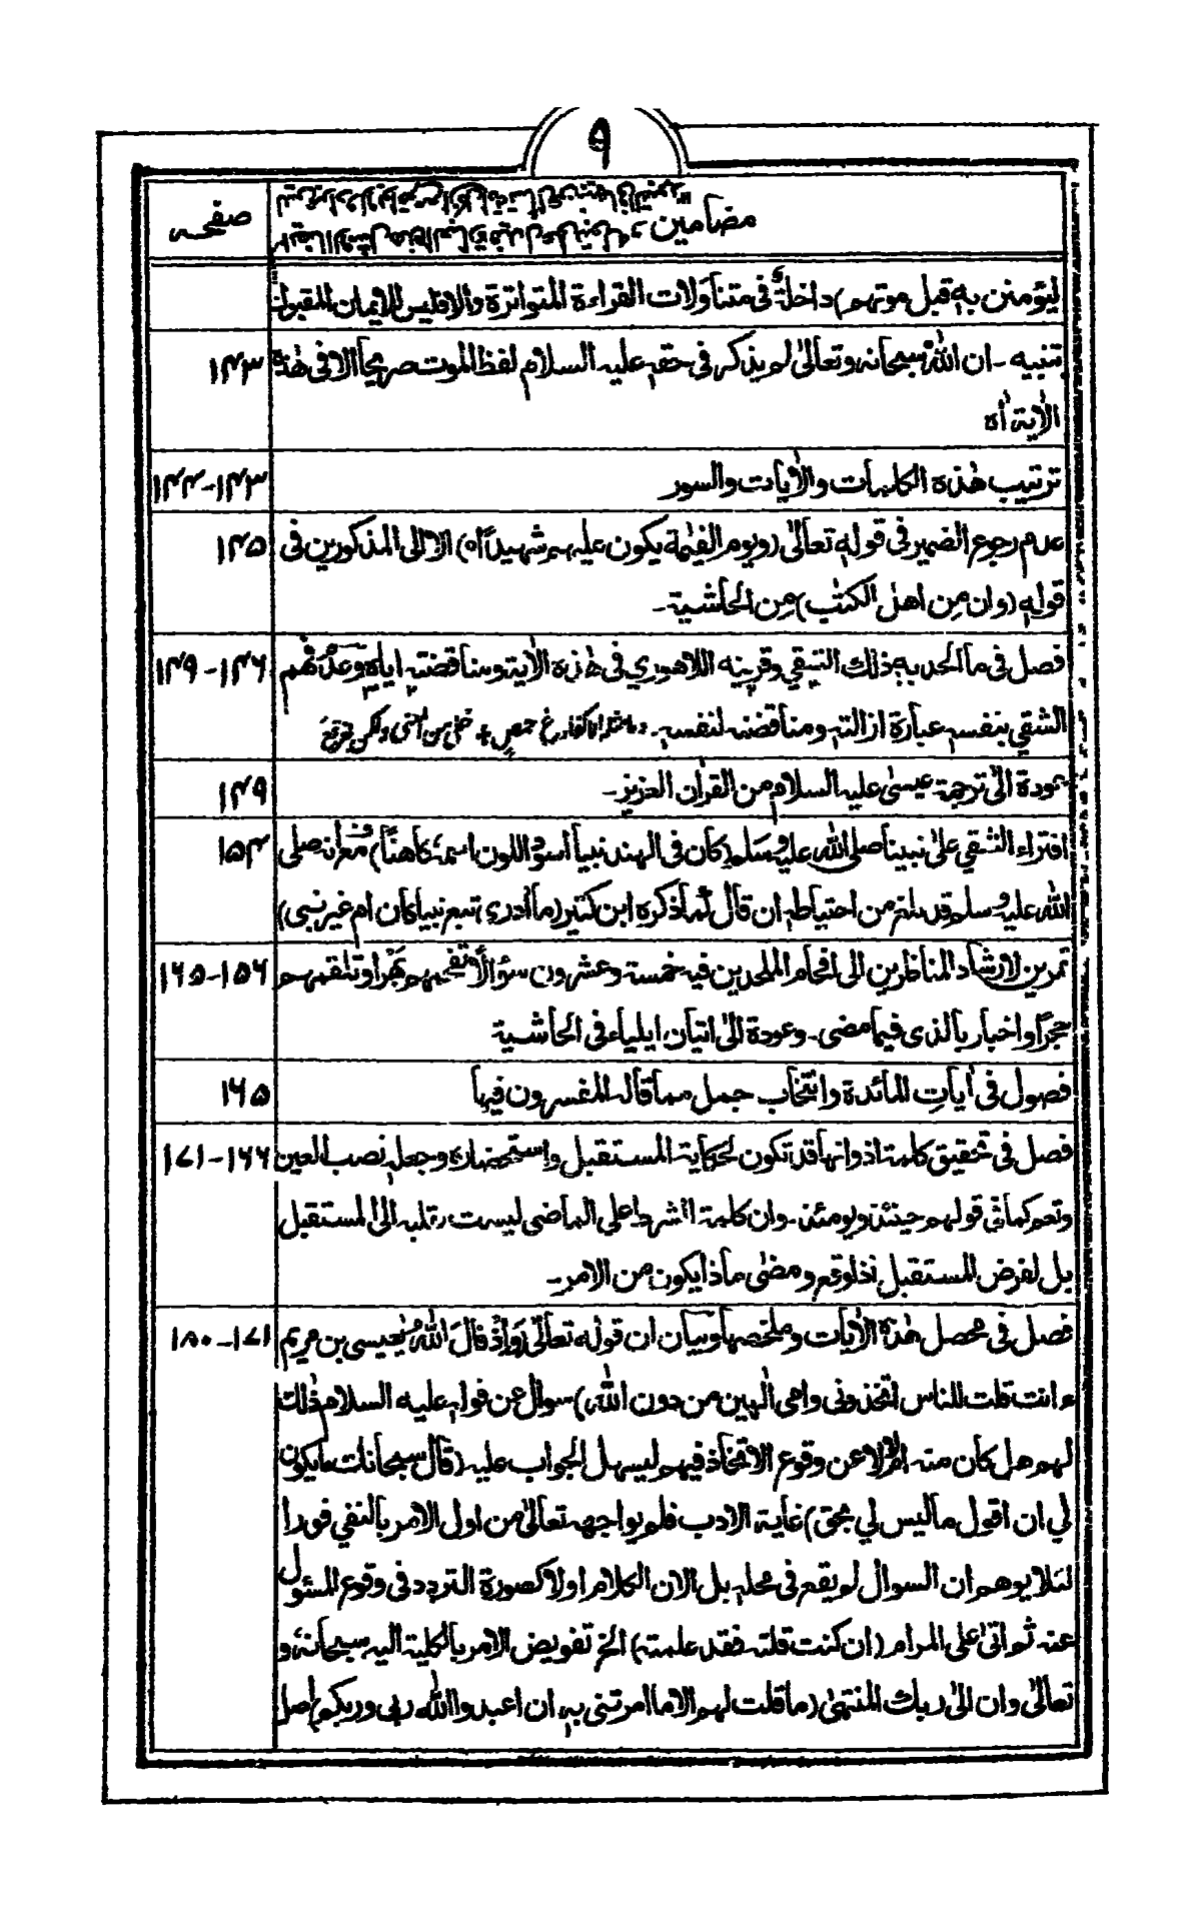 ٩
مضامين
صفيحه
ليؤمنن به قبل موتهم) داخلة في متناولات القراءة المتواترة والافليس للايمان المقبول
تنبيه - ان الله سبحانه وتعالىٰ لم يذكر في حقه عليه السلام لفظ الموت صريحا الا في هٰذه ١٤٣
الاٰية أه
ترتيب هٰذه الكلمات والاٰيات والسور ١٤٣-١٤٤
عدم رجوع الضمير في قوله تعالىٰ (ويوم القيٰمة يكون عليهم شهيدًا ه) الا الى المذكورين في ١٤٥
قوله (وان من اهل الكتٰب) من الحاشية -
فصل في ما الحد به ذلك الشقي وقرينه اللاهوري في هٰذه الاٰية ومناقضته اياه وعدّ فهم ١٤٦-١٤٩
الشقي بنفسه عبارة ازالته ومناقضته لنفسه -
عودة الىٰ ترجمة عيسىٰ عليه السلام من القراٰن العزيز - ١٤٩
افتراء الشقي علىٰ نبينا صلى الله عليه وسلم (كان في الهند نبيا اسود اللون اسمه كاهنًا) مع انه صلى ١٥٤
الله عليه وسلم قد بلغ من احتياطه ان قال لما ذكره ابن كثير (ما أدري تبع نبيا كان ام غير نبي)
تمرين لارشاد المناظرين الى افحام الملحدين فيه خمسة وعشرون سؤالًا تفحمهم بهرا وتلقمهم ١٥٦-١٦٥
حجرًا واخبار بالذي فيما مضى - وعودة الىٰ اتيان ايلياء في الحاشية
فصول في اٰيات المائدة وانتخاب جمل مما قاله المفسرون فيها ١٦٥
فصل في تحقيق كلمة اذ وانها قد تكون لحكاية المستقبل واستحضاره وجعله نصب العين ١٦٦-١٧١
ونعم كما في قولهم حينئذ ويومئذ - وان كلمة اذا علي الماضي ليست تقلبه الى المستقبل
بل لفرض المستقبل نذا وقع ومضىٰ ماذا يكون من الامر -
فصل في محصل هٰذه الاٰيات وملخصها وبيان ان قوله تعالىٰ (وَإِذْ قَالَ اللهُ يٰعيسى بن مريم ١٧١-١٨٠
ءانت قلت للناس اتخذوني وامي الٰهين من دون الله) سوال عن قوله عليه السلام ذلك
لهم هل كان منه ام لا لا عن وقوع الاتخاذ فيهم ليسهل الجواب عليه (قال سبحانك ما يكون
لي ان اقول ما ليس لي بحق) غاية الادب فلم يواجهه تعالىٰ من اول الامر بالنفي فورا
لئلا يوهم ان السوال لم يقع في محله بل الان الكلام اولا كصورة التردد في وقوع المسئول
عنه ثم اتىٰ على المرام (ان كنت قلته فقد علمته) الخ تفويض الامر بالكلية اليه سبحانه و
تعالىٰ وان الىٰ ربك المنتهىٰ (ما قلت لهم الا ما امرتني به ان اعبدوا الله ربي وربكم) اصل